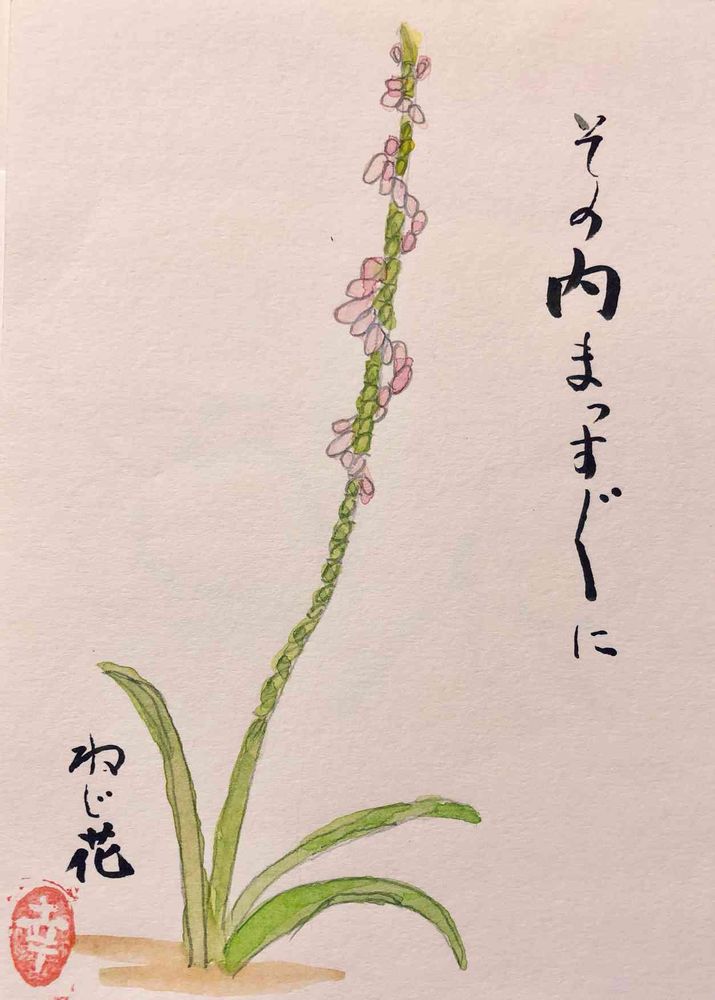 その内まっすぐに
ねじ花
幸